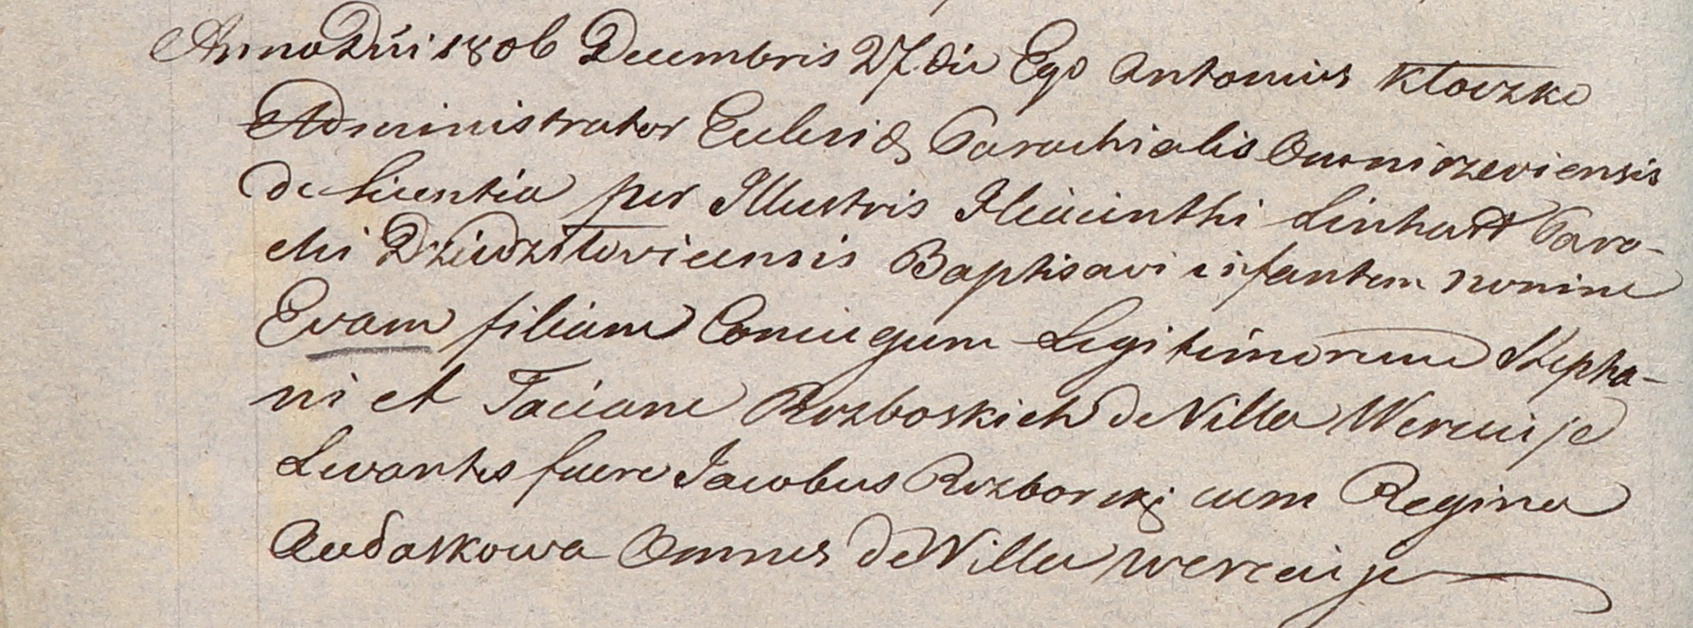 Anno Dni 1806 Decembris 27 die Ego Antonius Kłoczko
Administrator Eclesiæ Parochialis
de licentia per Illustris Hiacinthi Linhart Paro-
chi Dziedziłoviciensis Baptisavi infantem nomine
Evam filiam Coniugum Legitimorum Stepha-
ni et Taciane Rozborskich de Villa Wercuije
Levantes fuere Jacobus Rozborski cum Regina
Audaskowa Omnes de Villa Wercuije